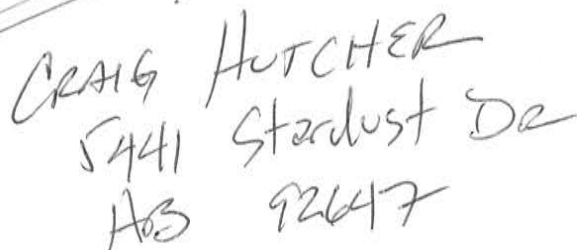 CRAIG HUTCHER
5441 Stardust DR
HB 92647